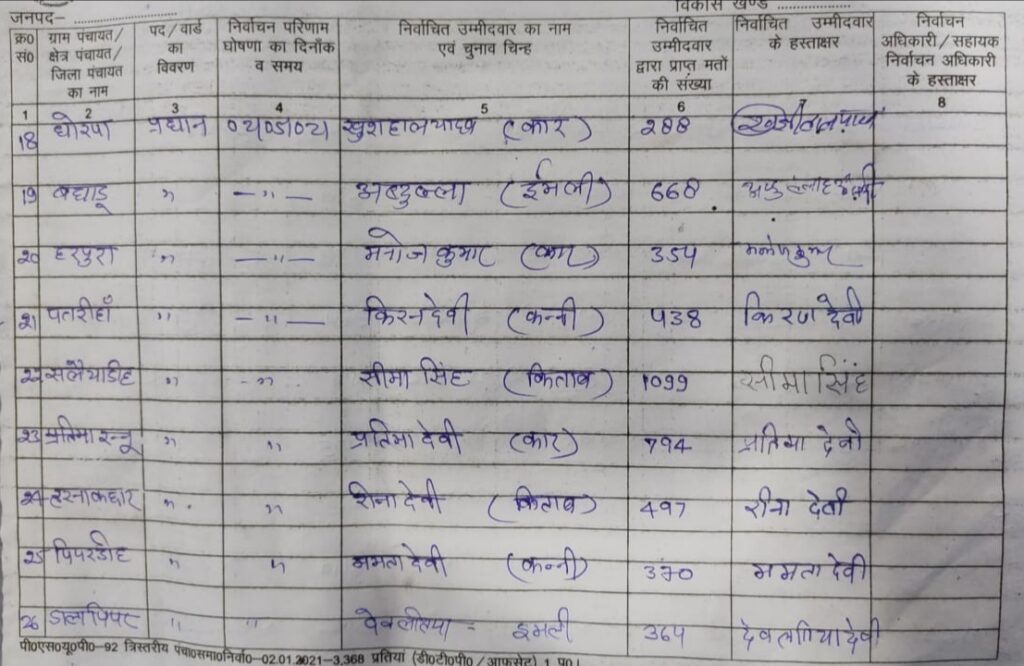 जनपद– ........................ विकास खण्ड ........................
क्र0 सं0 ग्राम पंचायत/ क्षेत्र पंचायत/ जिला पंचायत का नाम पद/वार्ड का विवरण निर्वाचन परिणाम घोषणा का दिनाँक व समय निर्वाचित उम्मीदवार का नाम एवं चुनाव चिन्ह निर्वाचित उम्मीदवार द्वारा प्राप्त मतों की संख्या निर्वाचित उम्मीदवार के हस्ताक्षर निर्वाचन अधिकारी/सहायक निर्वाचन अधिकारी के हस्ताक्षर
1 2 3 4 5 6 7 8
18 घोरपा प्रधान ०२/०५/०२१ खुशहाल यादव (कार) 288
19 बघाडू " —"— अब्दुल्ला (ईमली) 668
२० हरपुरा " —"— मनोज कुमार (कार) 354
२1 पतरीहाँ " —"— किरन देवी (कन्नी) 438 किरण देवी
२२ सलैयाडीह " -"- सीमा सिंह (किताब) 1099 सीमा सिंह
२3 " " प्रतिमा देवी (कार) 794 प्रतिमा देवी
२4 " " रीना देवी (किताब) 497 रीना देवी
२5 पिपरडीह " " ममता देवी (कन्नी) 370 ममता देवी
२6 " " - इमली 364 देवलगिया देवी
पी०एस०यू०पी०–92 त्रिस्तरीय पंचा०समा०निर्वा०–02.01.2021–3,368 प्रतियां (डी०टी०पी०/आफसेट)